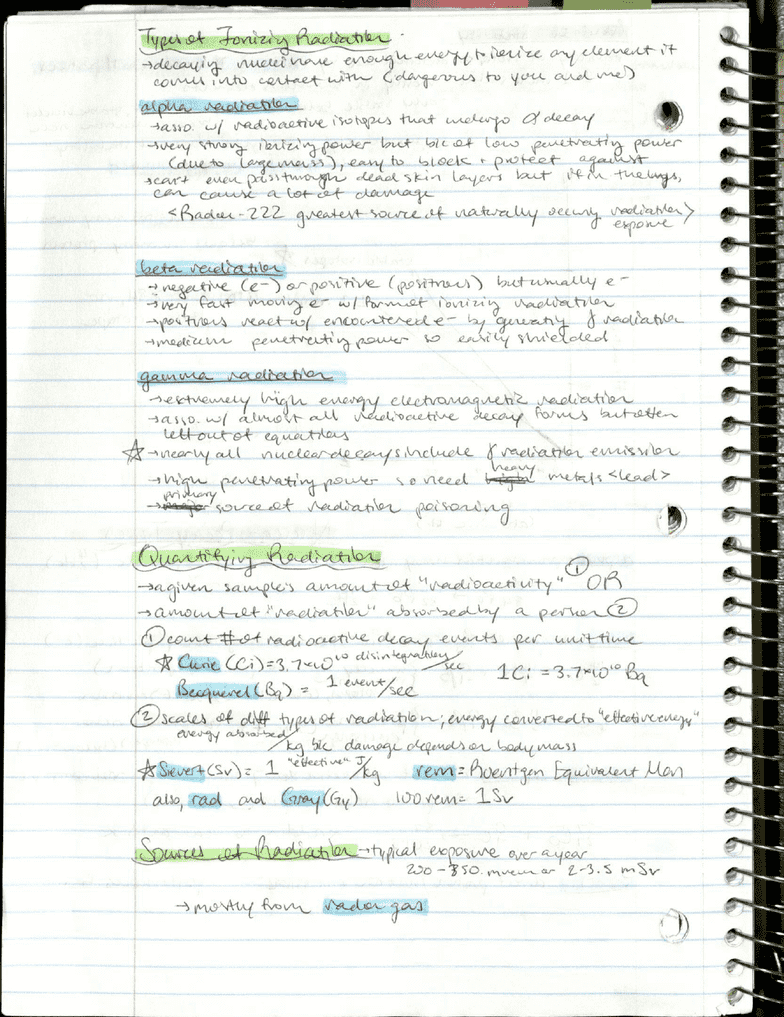 Types of Ionizing Radiation
→decaying nuclei have enough energy to ionize any element it
comes into contact with (dangerous to you and me!)
alpha radiation
→asso. w/ radioactive isotopes that undergo α decay
→very strong ionizing power but b/c of low penetrating power
(due to large mass), easy to block + protect against
→can't even pass through dead skin layers but if in the lungs,
can cause a lot of damage
<Radon-222 greatest source of naturally occurring radiation>
exposure
beta radiation
→negative (e-) or positive (positrons) but usually e-
→very fast moving e- w/ form of ionizing radiation
→positrons react w/ encountered e- by generating γ radiation
→medium penetrating power so easily shielded
gamma radiation
→extremely high energy electromagnetic radiation
→asso. w/ almost all radioactive decay forms but often
left out of equations
☆→nearly all nuclear decays include γ radiation emission
→high penetrating power so need heavy metals <lead>
→primary source of radiation poisoning
Quantifying Radiation
→a given sample's amount of "radioactivity" ① OR
→amount of "radiation" absorbed by a person ②
① count # of radioactive decay events per unit time
☆ Curie (Ci) = 3.7×10^10 disintegrations/sec 1 Ci = 3.7×10^10 Bq
Becquerel (Bq) = 1 event/sec
② scales of diff types of radiation; energy converted to "effective energy"
energy absorbed/kg b/c damage depends on body mass
☆ Sievert (Sv) = 1 "effective" J/kg rem = Roentgen Equivalent Man
also, rad and Gray (Gy) 100 rem = 1 Sv
Sources of Radiation → typical exposure over a year
200-350 mrem or 2-3.5 mSv
→mostly from radon gas